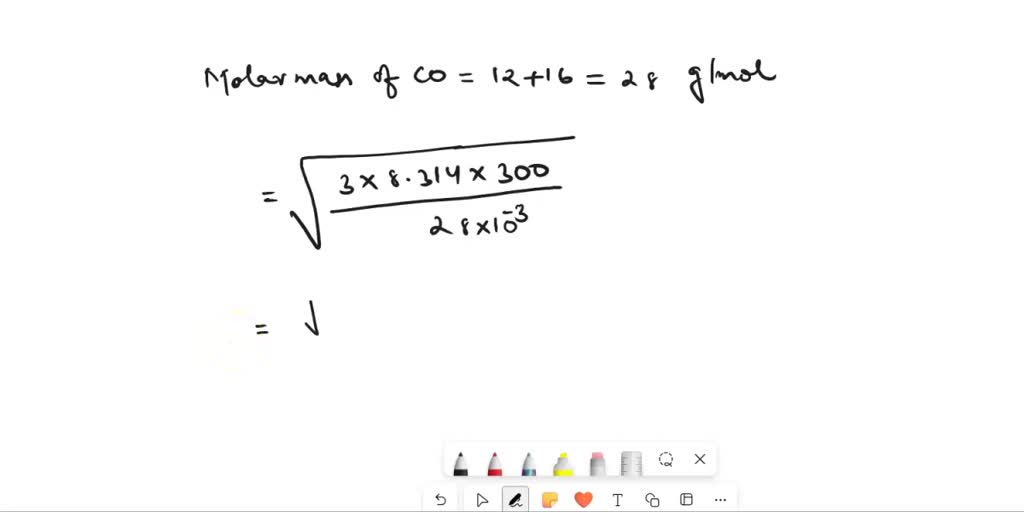 Molar mass of CO = 12+16 = 28 g/mol
= √ 3 × 8.314 × 300
28×10⁻³
= √
T